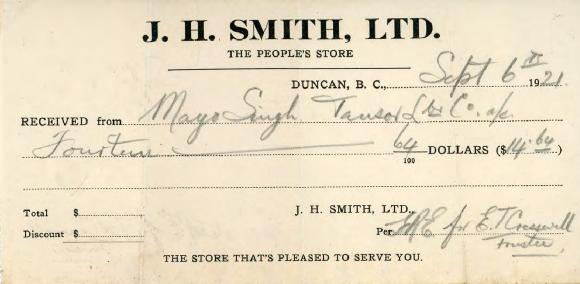 J. H. SMITH, LTD.
THE PEOPLE'S STORE
DUNCAN, B. C., Sept 6th 1921
RECEIVED from Mayo Singh Tansor Lbr Co. a/c
Fourteen 64/100 DOLLARS ($14.64)
Total $
Discount $
J. H. SMITH, LTD.
Per for E. T Cresswell
Trustee
THE STORE THAT'S PLEASED TO SERVE YOU.